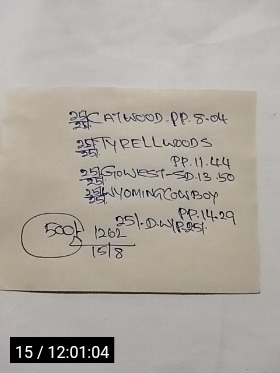 25/25 CATWOOD. PP. 8.04
25/25 TYRELLWOODS
PP. 11.44
25/25 GOWEST - SD. 13.50
25/25 WYOMING COWBOY
PP. 14.29
25/. D.W/P.25/.
500/- 1262
15/8
15 / 12:01:04